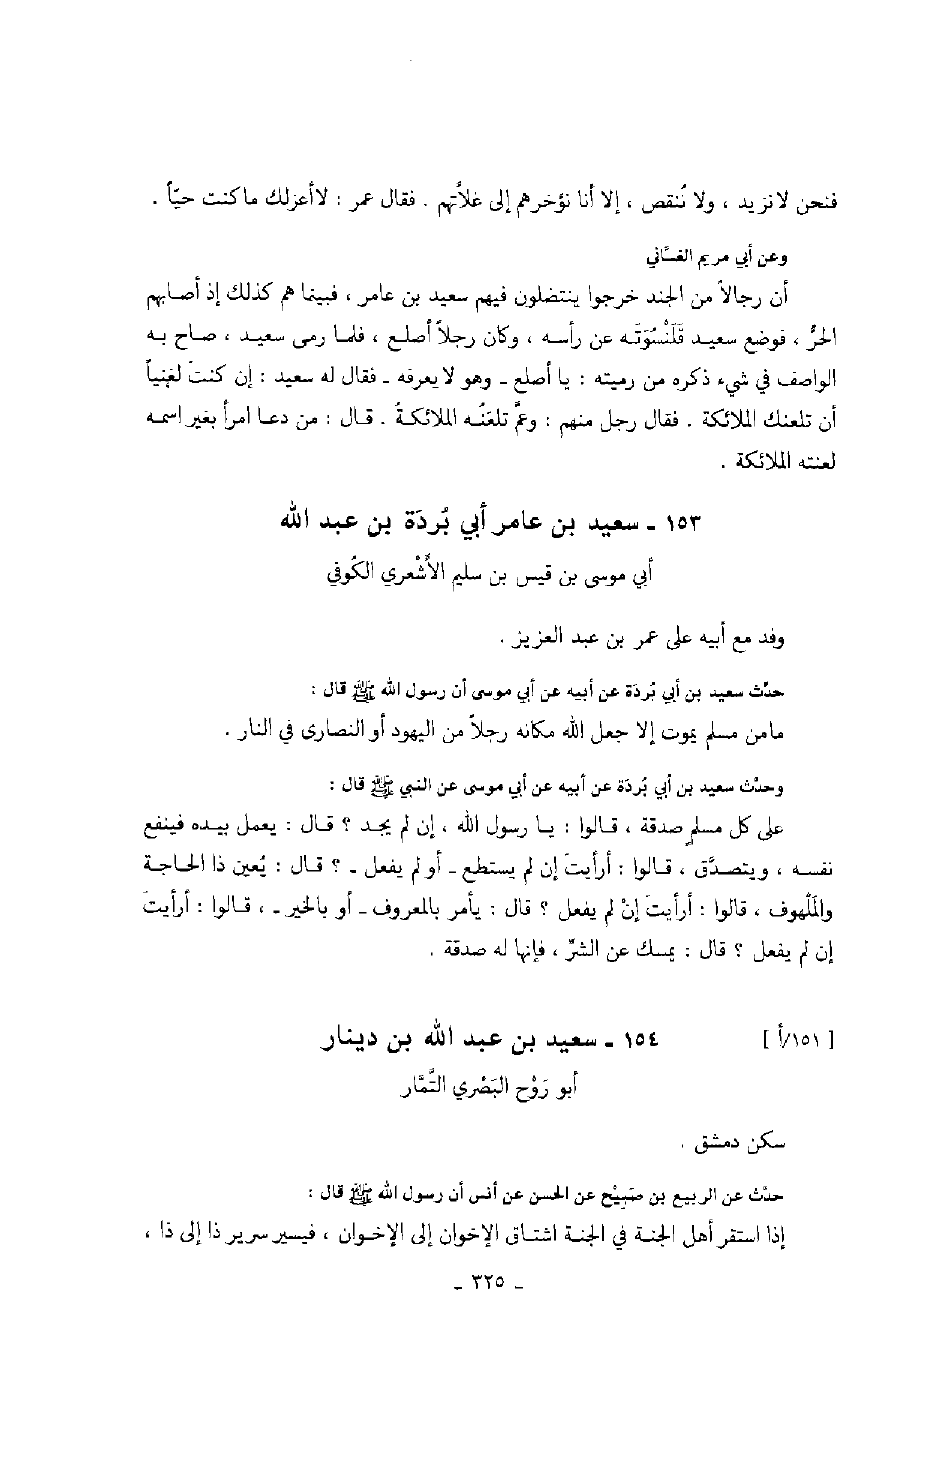 فنحن لا نزيد ، ولا نُنقص ، إلا أنا نؤخرهم إلى غلاّتهم . فقال عمر : لا أعزلك ما كنت حيّاً .
وعن أبي مريم الغسّاني
أن رجالاً من الجند خرجوا ينتضلون فيهم سعيد بن عامر ، فبينما هم كذلك إذ أصابهم
الحرُّ ، فوضع سعيد قَلَنْسُوَتَه عن رأسه ، وكان رجلاً أصلع ، فلما رمى سعيد ، صاح به
الواصف في شيء ذكره من رميته : يا أصلع - وهو لا يعرفه - فقال له سعيد : إن كنتَ لغنياً
أن تلعنك الملائكة . فقال رجل منهم : وعمَّ تلعَنُه الملائكةُ . قال : من دعا امرأ بغير اسمه
لعنته الملائكة .
١٥٣ - سعيد بن عامر أبي بُردَة بن عبد الله
أبي موسى بن قيس بن سليم الأَشْعري الكُوفي
وفد مع أبيه على عمر بن عبد العزيز .
حدَّث سعيد بن أبي بُردَة عن أبيه عن أبي موسى أن رسول الله ﷺ قال :
ما من مسلم يموت إلا جعل الله مكانه رجلاً من اليهود أو النصارى في النار .
وحدَّث سعيد بن أبي بُردَة عن أبيه عن أبي موسى عن النبي ﷺ قال :
على كل مسلمٍ صدقة ، قالوا : يا رسول الله ، إن لم يجد ؟ قال : يعمل بيده فينفع
نفسه ، ويتصدَّق ، قالوا : أرأيتَ إن لم يستطع - أو لم يفعل - ؟ قال : يُعين ذا الحاجة
والمَلْهوف ، قالوا : أرأيتَ إنْ لم يفعل ؟ قال : يأمر بالمعروف - أو بالخير - ، قالوا : أرأيتَ
إن لم يفعل ؟ قال : يمسك عن الشرِّ ، فإنها له صدقة .
[ ١٥١/أ ] ١٥٤ - سعيد بن عبد الله بن دينار
أبو رَوْح البَصْري التَّمَّار
سكن دمشق .
حدَّث عن الربيع بن صَبِيْح عن الحسن عن أنس أن رسول الله ﷺ قال :
إذا استقر أهل الجنة في الجنة اشتاق الإخوان إلى الإخوان ، فيسير سرير ذا إلى ذا ،
- ٣٢٥ -